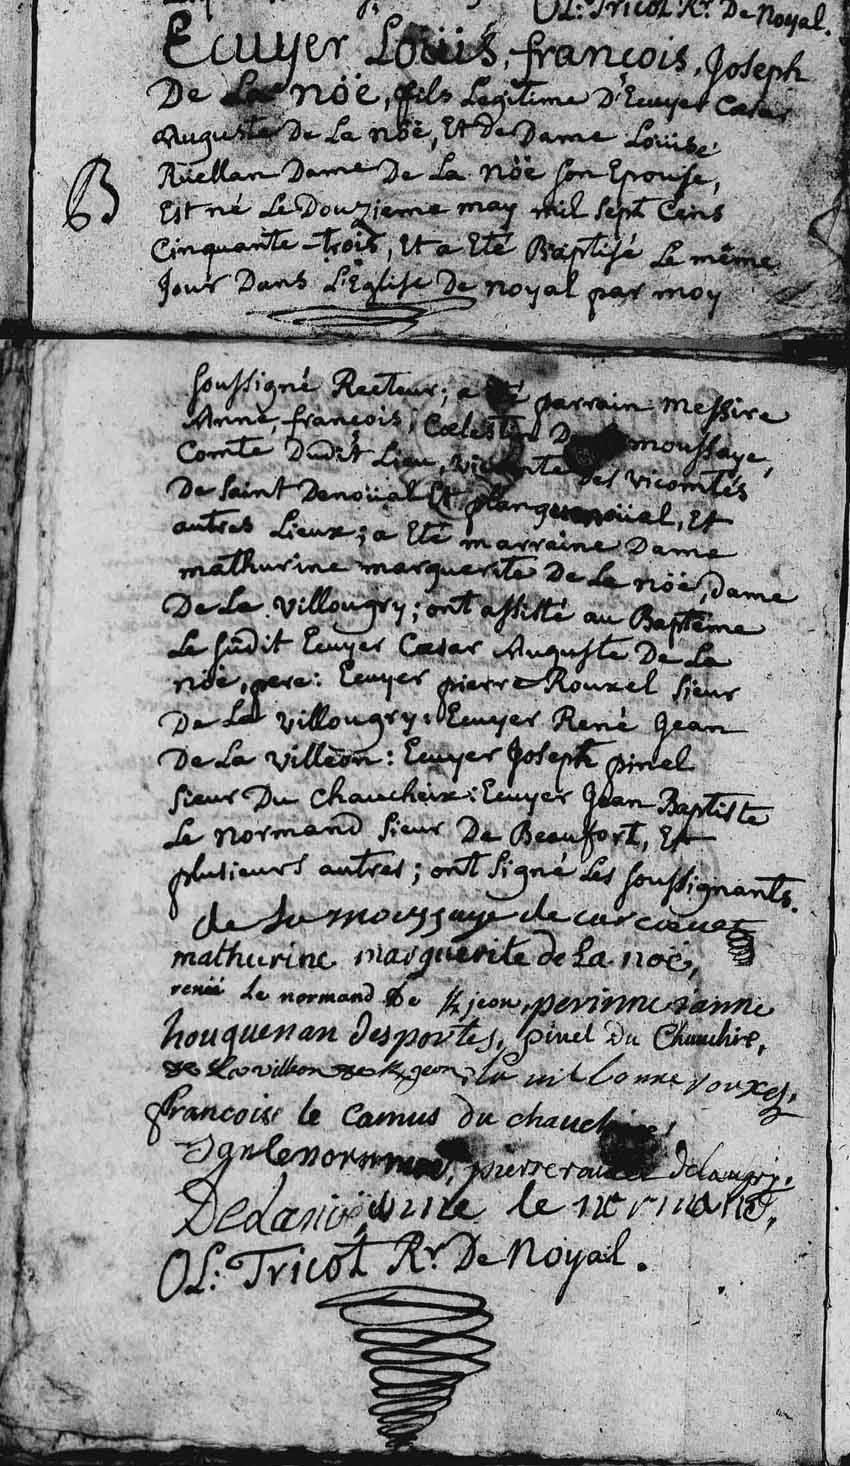 OL: Tricot Rr. De Noyal.
Ecuyer Loüis, françois, Joseph
De La nöë, fils Legitime D'Ecuyer Cæsar
Auguste De La nöë, Et de Dame Loüise
Rüellan Dame De La nöë son Epouse,
B
Est né Le Douzieme may mil sept Cens
Cinquante-trois, Et a Eté Baptisé Le même
Jour Dans L'Eglise De noyal par moy
soussigné Recteur; a Eté parrain messire
Anne, françois, Cœlestin De La moussaye,
Comte Dudit Lieu, vicomte des vicomtés
De saint Denoüal Et plangüenoüal, Et
autres Lieux; a Eté marraine Dame
mathurine marguerite De La nöë, dame
De La villougry; ont assisté au Baptême
Le susdit Ecuyer Cæsar Auguste De La
nöë, pere: Ecuyer pierre Rouxel sieur
De La villougry: Ecuyer René Jean
De La villéon: Ecuyer Joseph pinel
sieur Du Chaucheix: Ecuyer Jean Baptiste
Le normand sieur De Beaufort, Et
plusieurs autres; ont signé Les soussignants.
de La moussaye de carcoüet
mathurine marguerite de La noë,
renée Le normand De K jeon, perinne janne
houguenan desportes, pinel du Chauchix,
De La villeon De Kjeon, rouxel,
francoise le Camus du chauchix
le normand, pierre rouxel
De La noë, le normand,
OL: Tricot Rr. De Noyal.